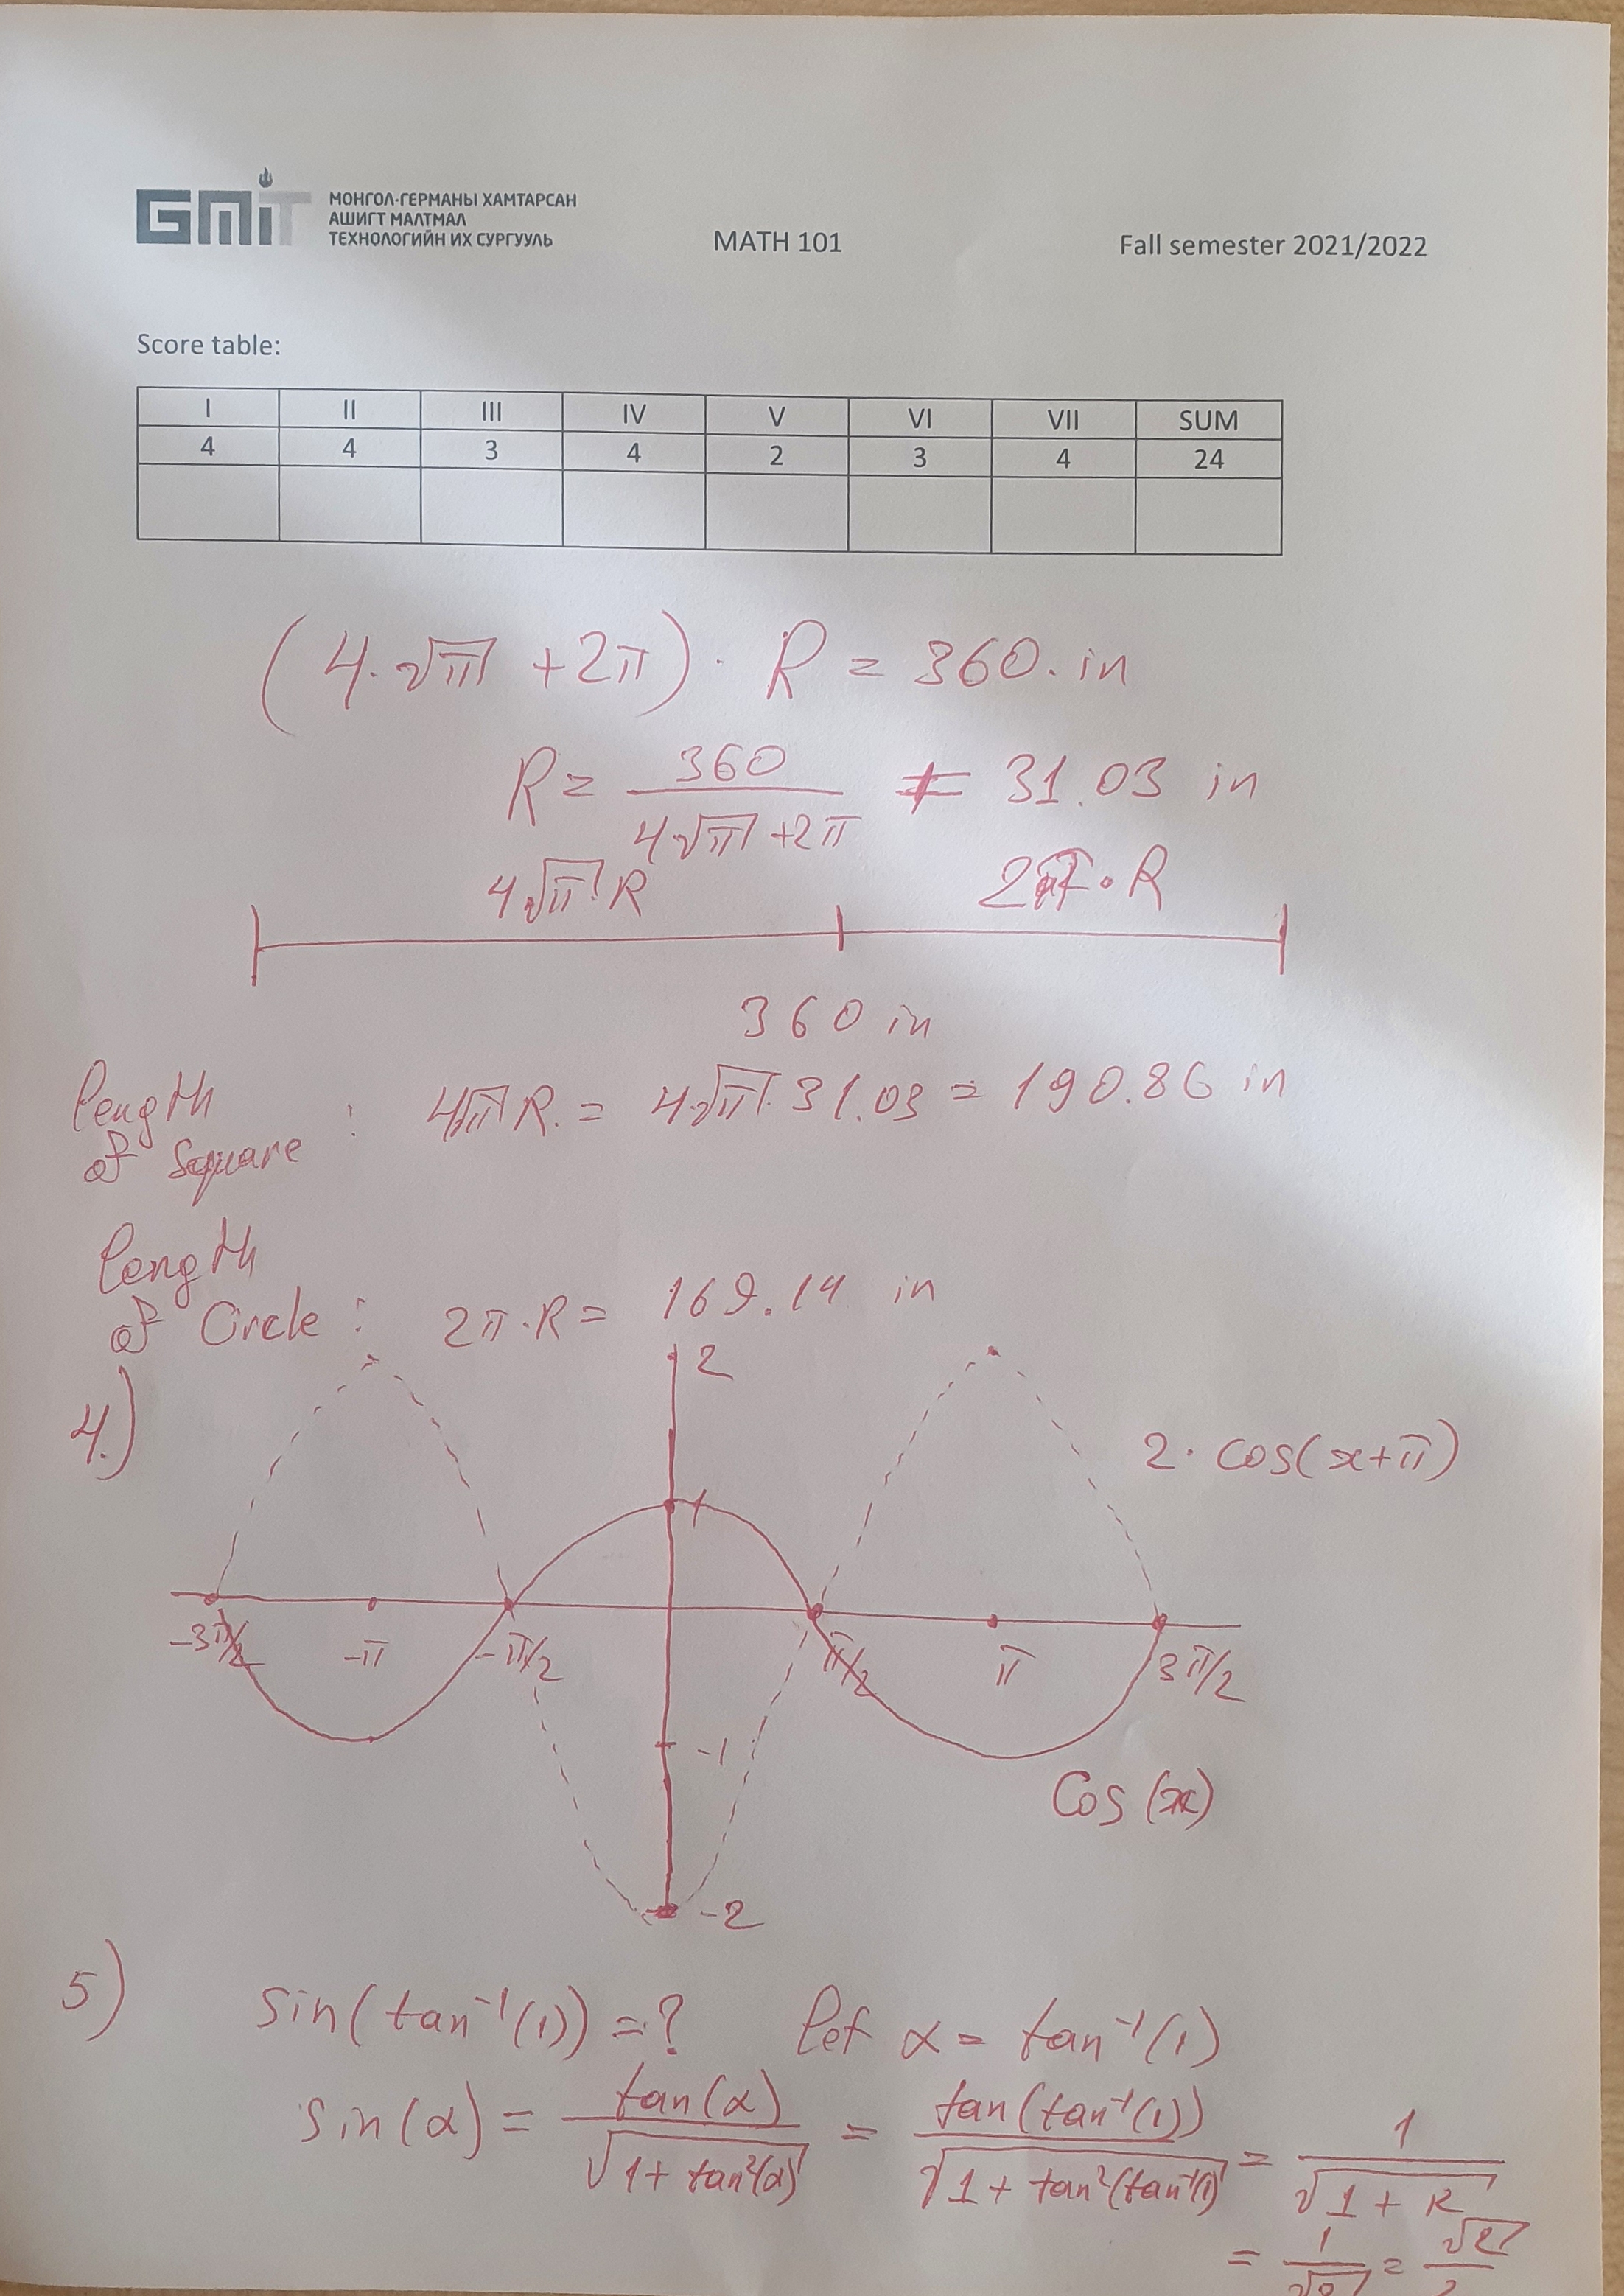 GMIT
МОНГОЛ-ГЕРМАНЫ ХАМТАРСАН
АШИГТ МАЛТМАЛ
ТЕХНОЛОГИЙН ИХ СУРГУУЛЬ
MATH 101
Fall semester 2021/2022
Score table:
I II III IV V VI VII SUM
4 4 3 4 2 3 4 24
(4·√π + 2π) · R = 360. in
R = 360 / (4√π + 2π) = 31.03 in
4√π·R 2π·R
360 in
length
of Square : 4√π R. = 4·√π·31.03 = 190.86 in
length
of Circle : 2π·R = 169.14 in
4.)
2
2·cos(x+π)
1
-3π/2 -π -π/2 π/2 π 3π/2
-1
Cos(x)
-2
5) sin(tan⁻¹(1)) = ? let α = tan⁻¹(1)
sin(α) = tan(α) / √(1 + tan²(α)) = tan(tan⁻¹(1)) / √(1 + tan²(tan⁻¹(1)) = 1 / √(1 +
= 1 / √2 = √2 / 2